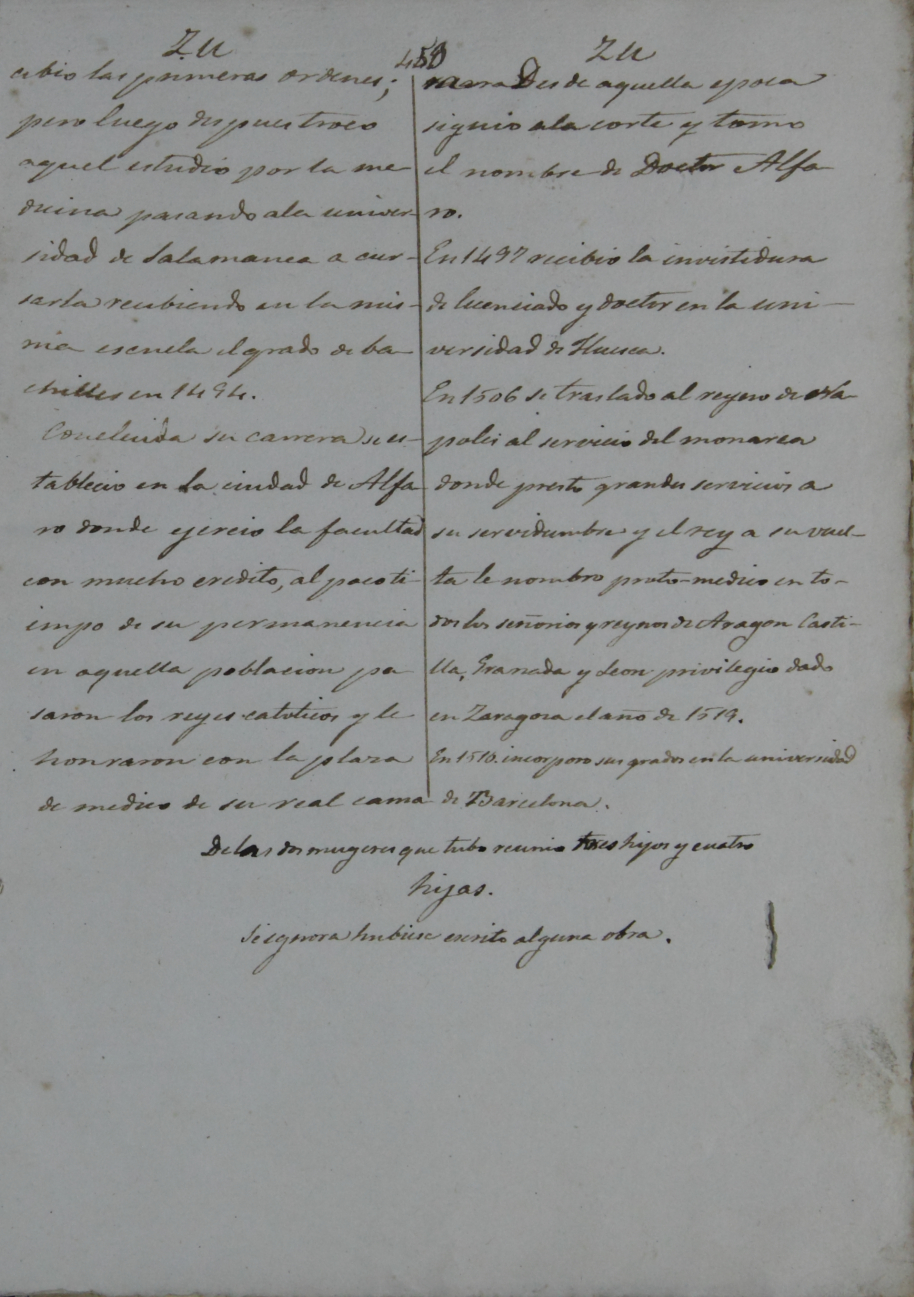 Zu
450
Zu
cibio las primeras ordenes;
pero luego despues troco
aquel estudio por la me-
dicina pasando ala univer-
sidad de Salamanca a cur-
sarla recibiendo en la mis-
ma escuela el grado de ba-
chiller en 1494.
Concluida su carrera se es-
tablecio en la ciudad de Alfa
ro donde ejercio la facultad
con mucho credito, al poco ti-
empo de su permanencia
en aquella poblacion pa
saron los reyes catolicos y le
honraron con la plaza
de medico de su real cama
Desde aquella epoca
siguio ala corte y tomo
el nombre de Doctor Alfa
ro.
En 1497 recibio la investidura
de licenciado y doctor en la uni-
versidad de Huesca.
En 1506 se traslado al reyno de Na-
poles al servicio del monarca
donde presto grandes servicios a
su servidumbre y el rey a su vuel-
ta le nombro proto-medico en to-
dos los señorios y reynos de Aragon Casti-
lla, Granada y Leon privilegio dado
en Zaragoza el año de
En 1510. incorporo sus grados en la universidad
de Barcelona.
De las dos mugeres que tubo reunio tres hijos y cuatro
hijas.
Se ignora hubiese escrito alguna obra.